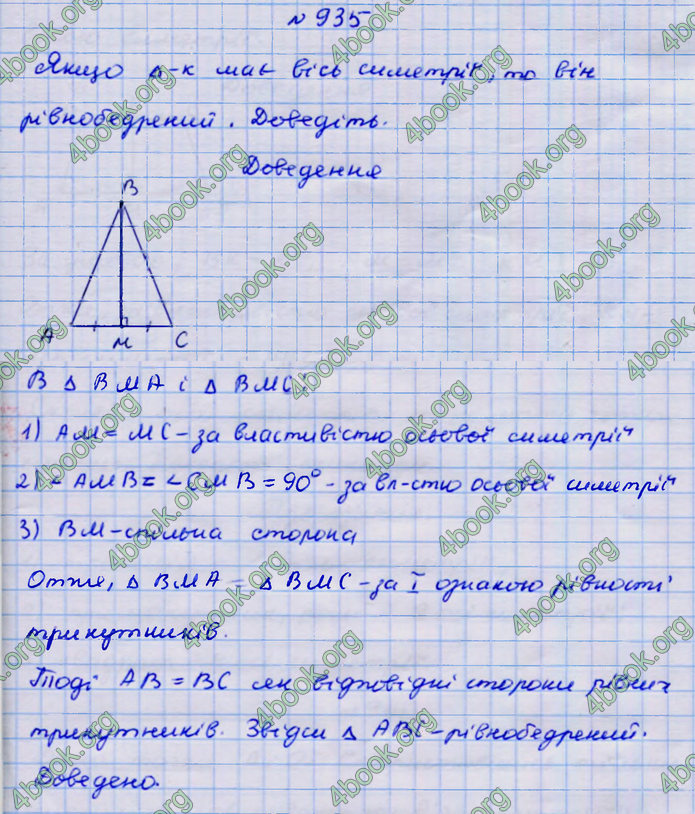 № 935
Якщо Δ-к має вісь симетрії, то він
рівнобедрений. Доведіть.
Доведення
B
A M C
В Δ BMA і Δ BMC:
1) AM = MC - за властивістю осьової симетрії
2) ∠AMB = ∠CMB = 90° - за вл-стю осьової симетрії
3) BM - спільна сторона
Отже, Δ BMA = Δ BMC - за I ознакою рівності
трикутників.
Тоді AB = BC як відповідні сторони рівних
трикутників. Звідси Δ ABC - рівнобедрений.
Доведено.
4book.org